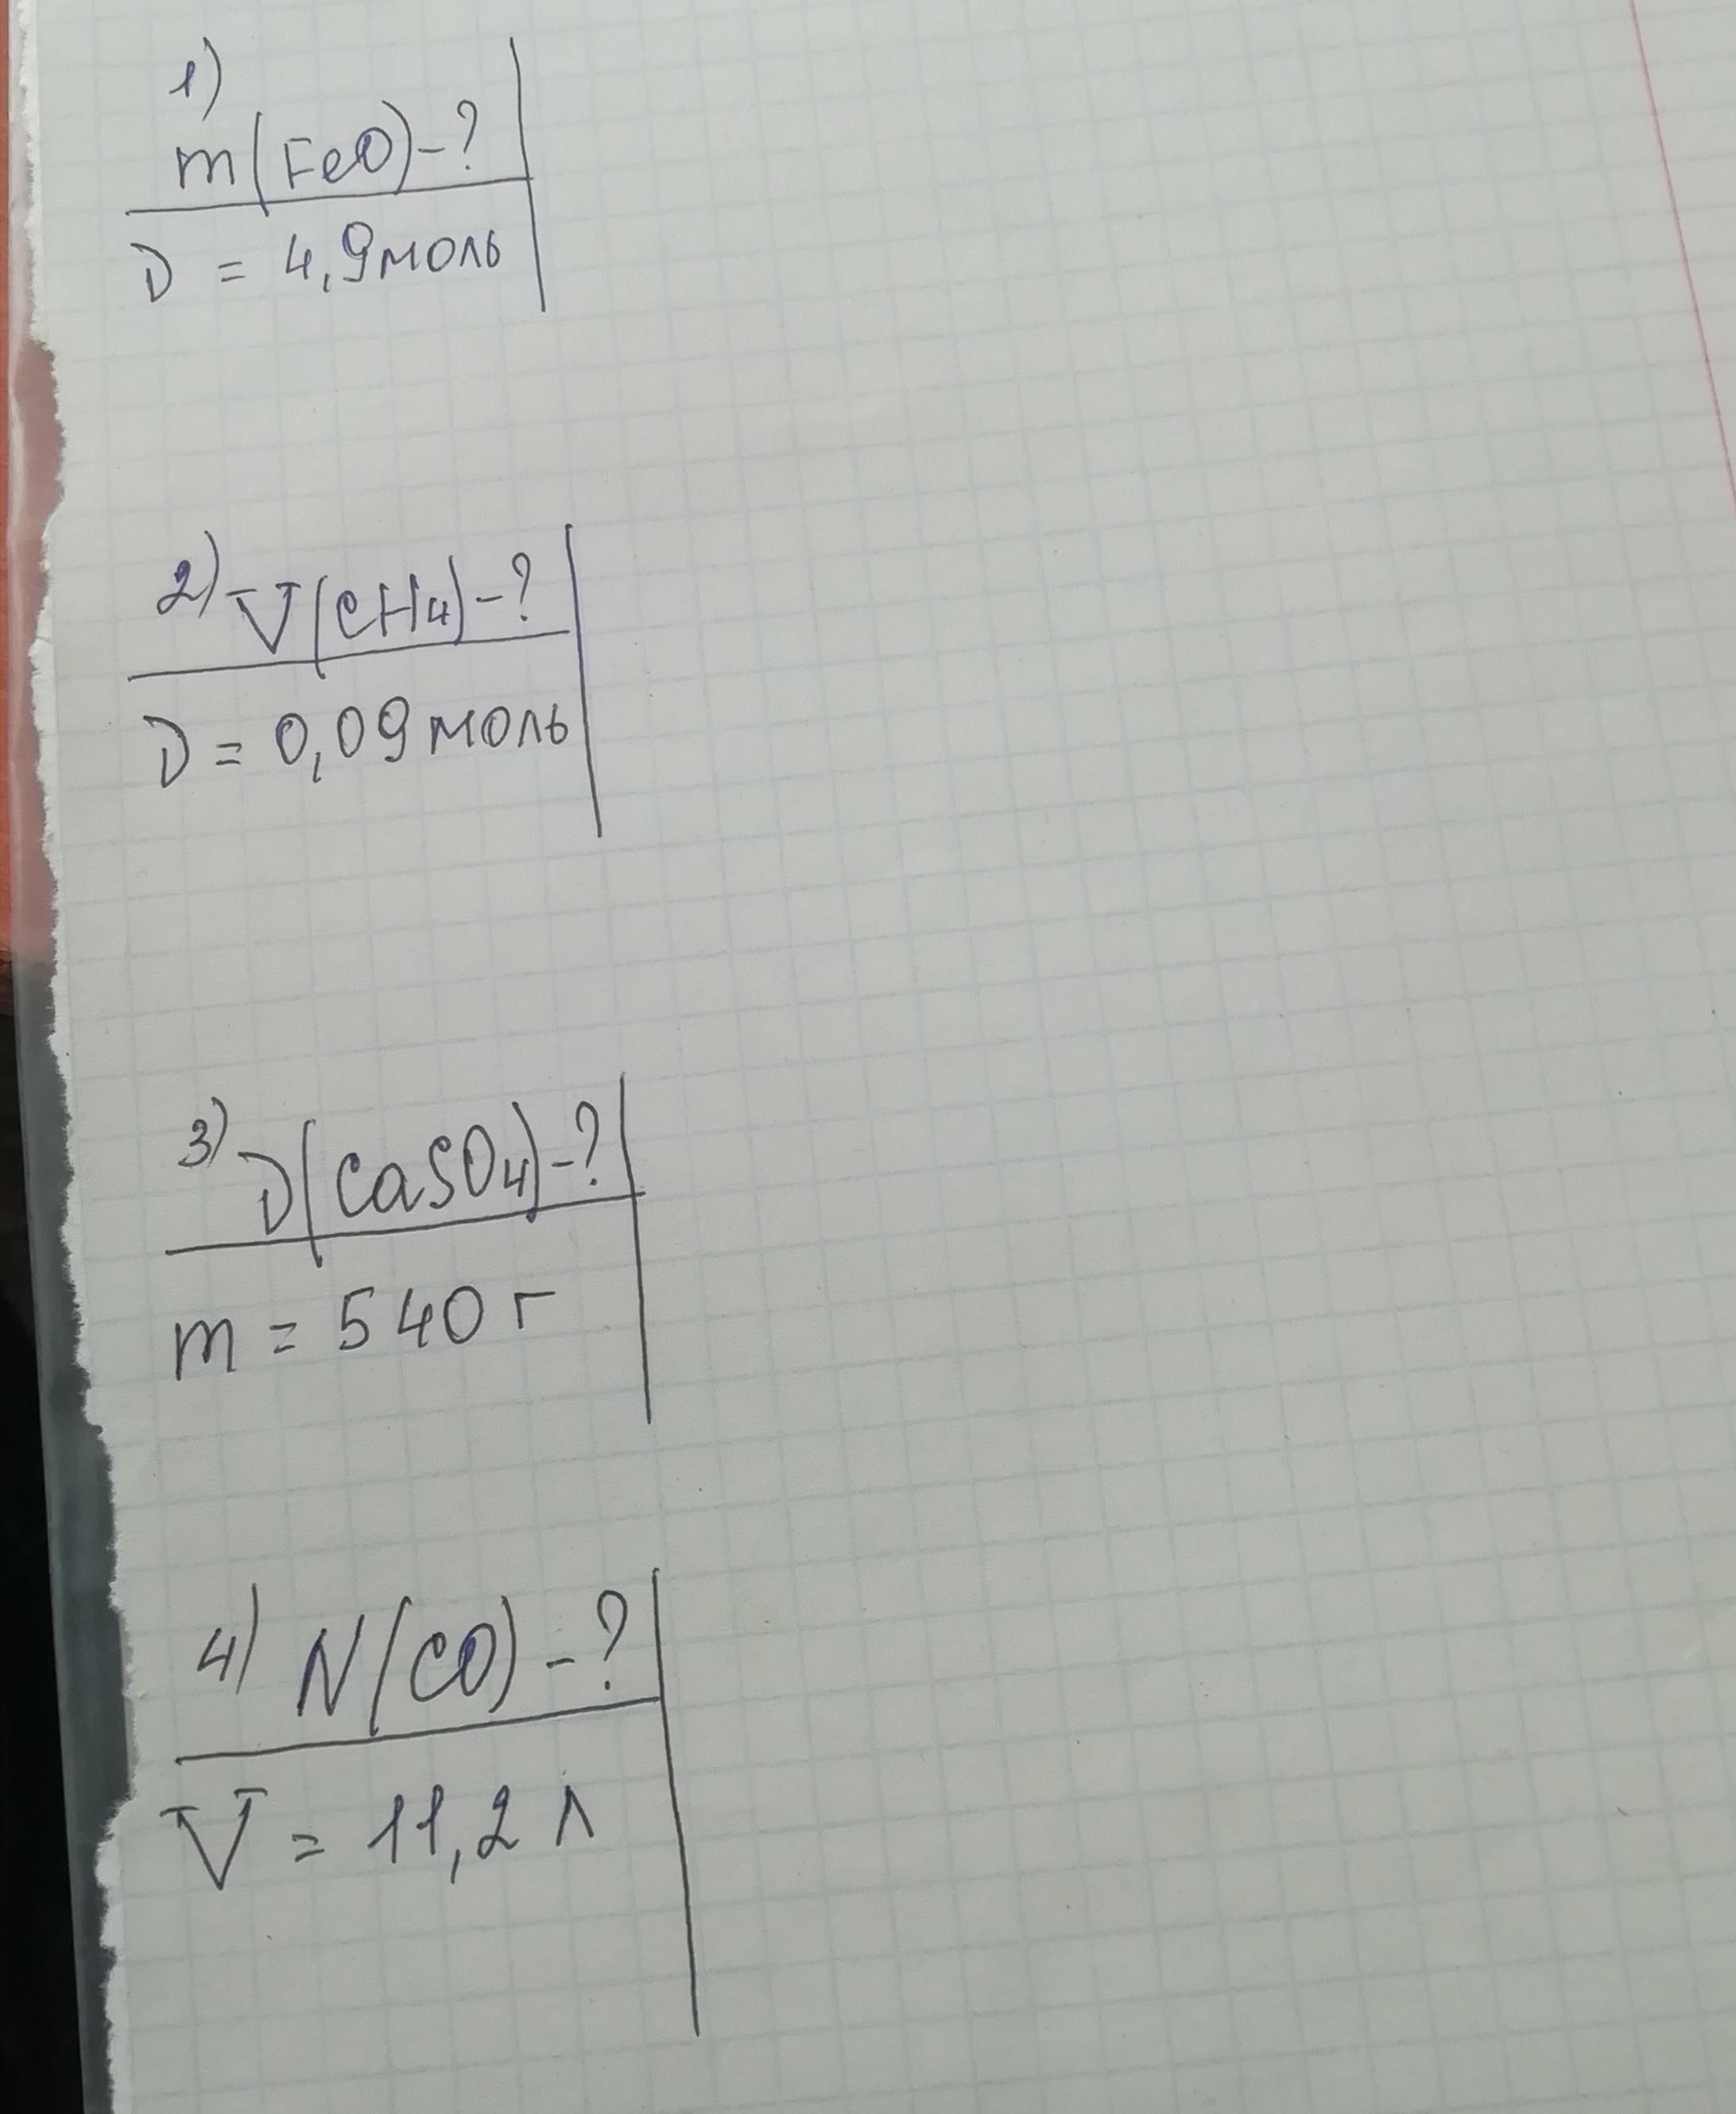 1)
m(FeO)-?
ν = 4,9моль
2) V(CH4)-?
ν = 0,09моль
3) ν(CaSO4)-?
m = 540 г
4) N(CO) - ?
V = 11,2 л